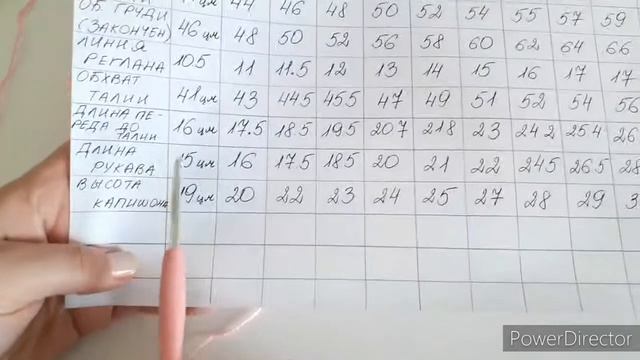 ОБ ГРУДИ 44 46 48 50 52 54 55 57 59
(ЗАКОНЧЕН) 46 цм 48 50 52 56 58 60 62 64 66
ЛИНИЯ
РЕГЛАНА 105 11 11.5 12 13 14 15 16 17 17
ОБХВАТ
ТАЛИИ 41 цм 43 445 455 47 49 51 52 54 56
ДЛИНА ПЕ-
РЕДА ДО ТАЛИИ 16 цм 17.5 185 195 207 218 23 242 254 26
ДЛИНА
РУКАВА 15 цм 16 175 185 20 21 22 245 26.5 28
ВЫСОТА
КАПИШОНА 19 цм 20 22 23 24 25 27 28 29
PowerDirector